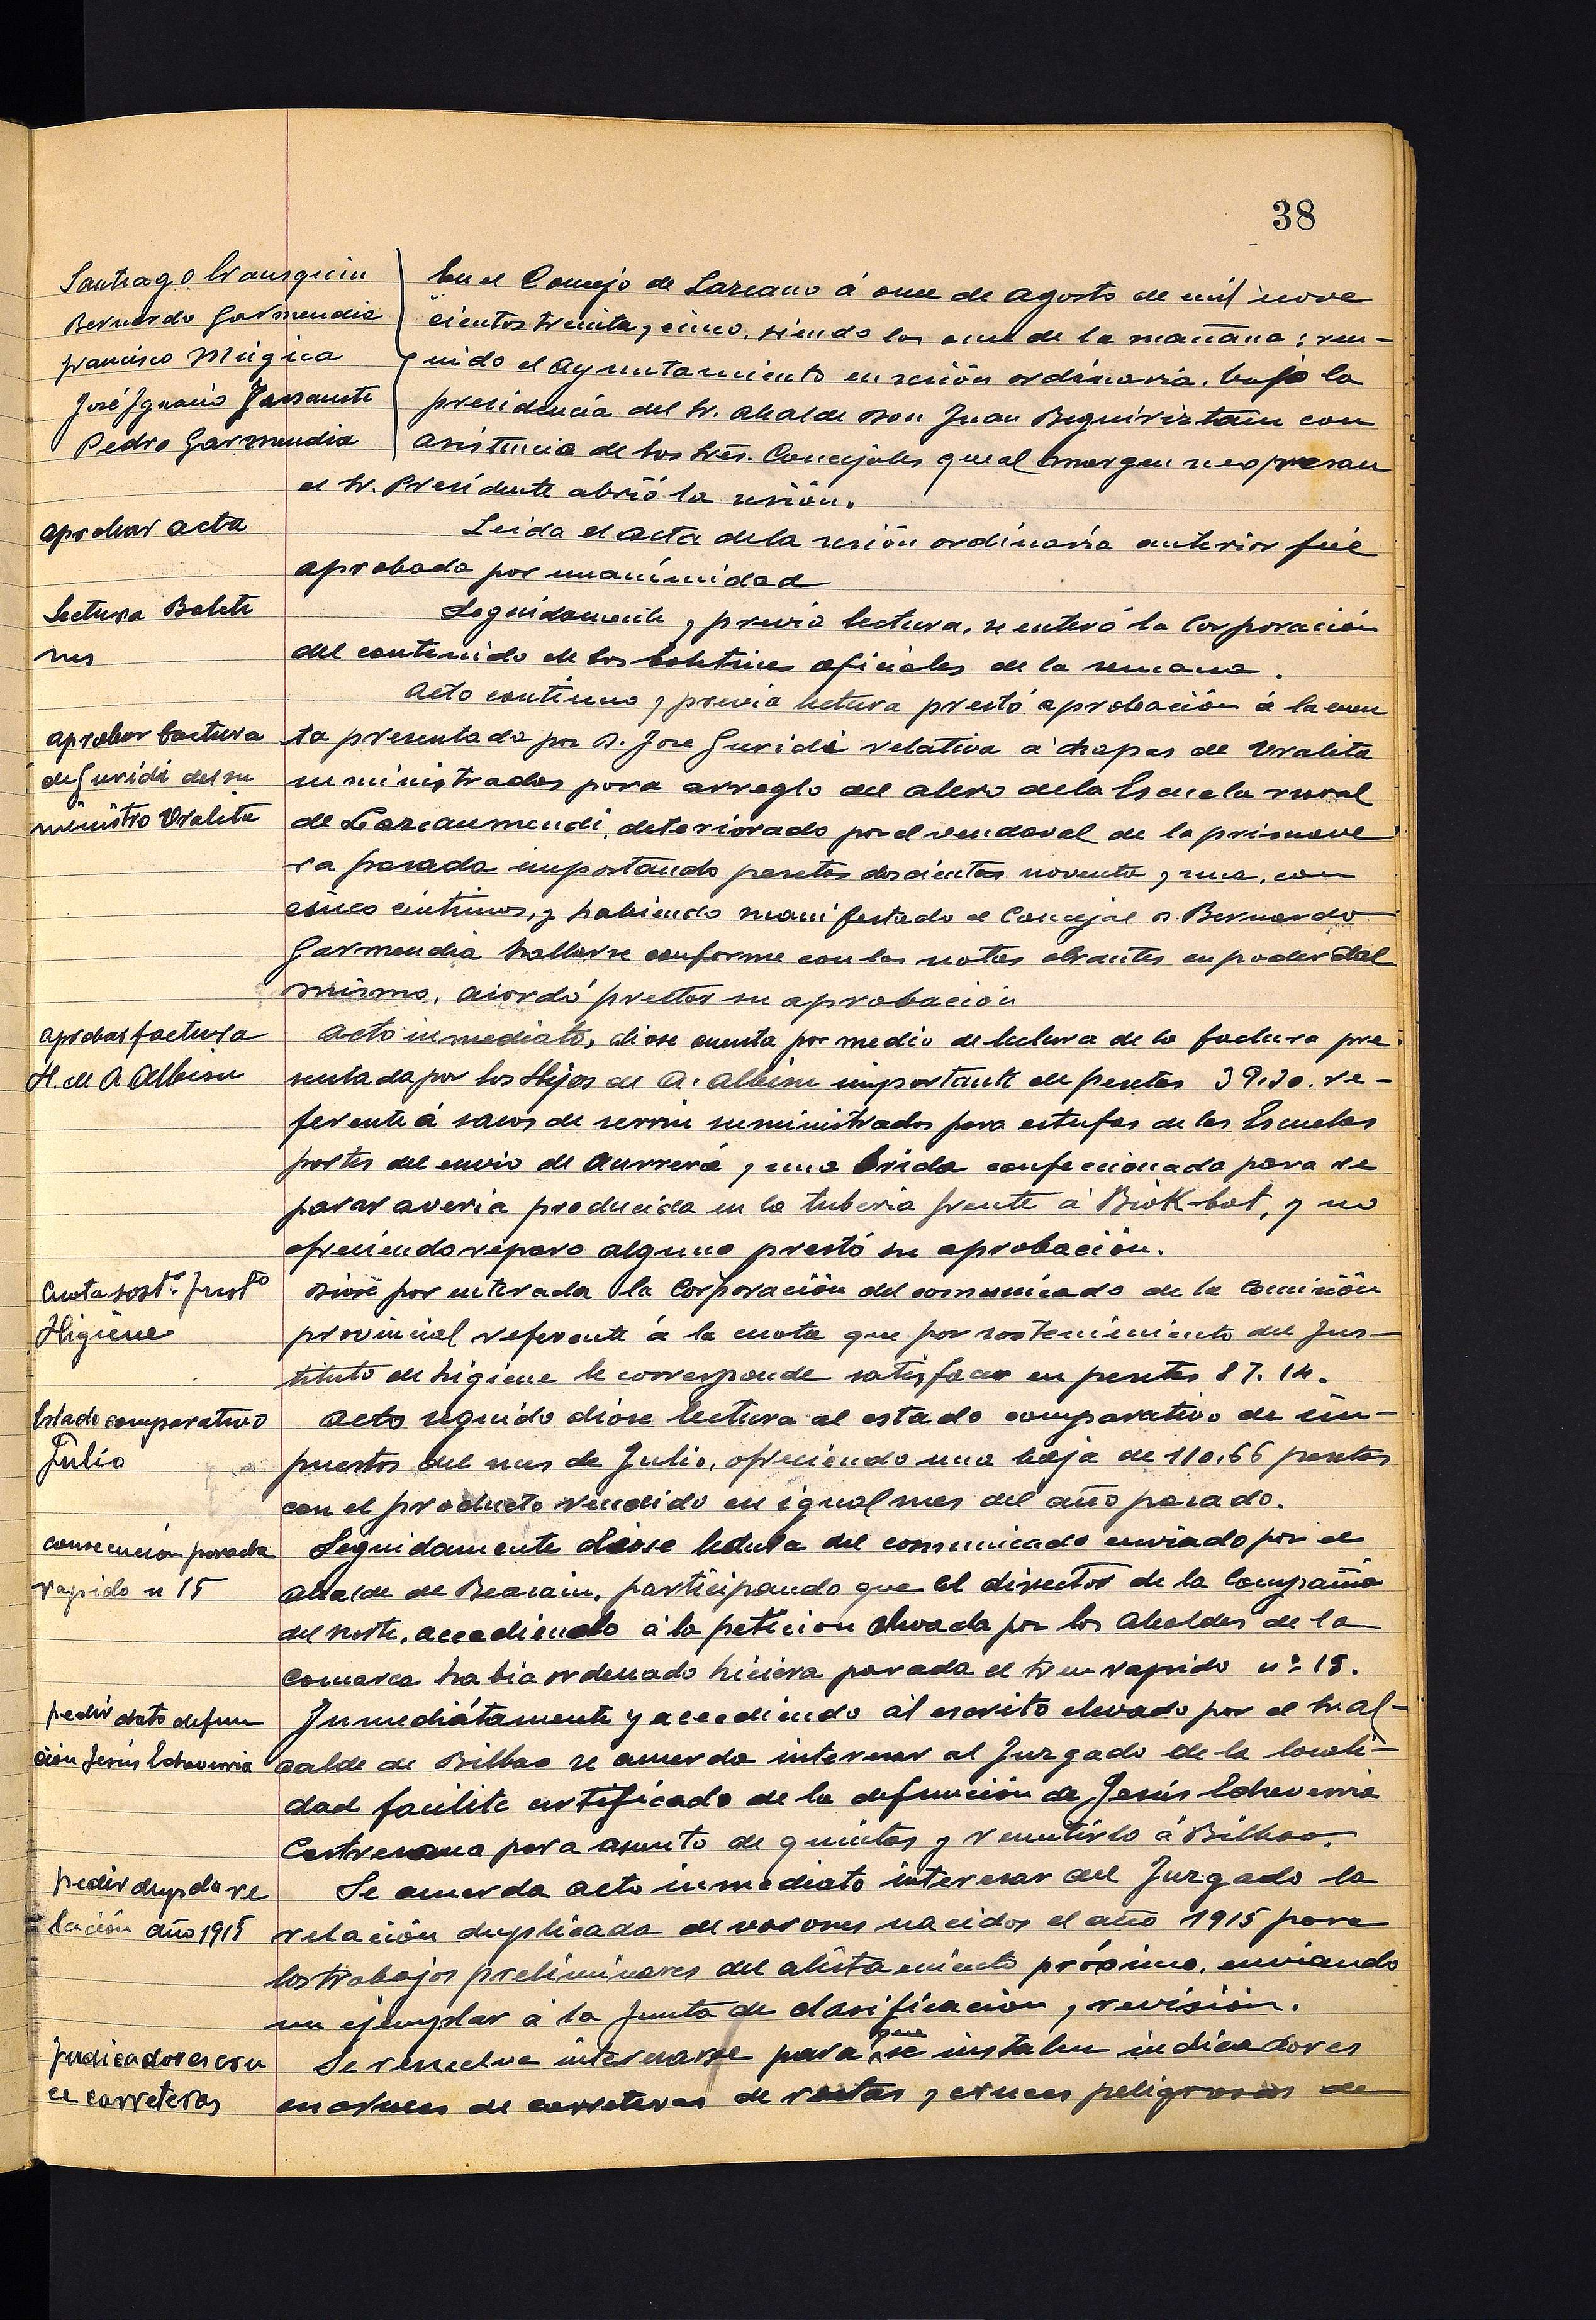 38
Santiago Iransquin
Bernardo Garmendia
Francisco Múgica
José Ignacio
Pedro Garmendia
En el Concejo de Lazcano á once de Agosto de mil nove
cientos treinta y cinco, siendo las once de la mañana; reu-
nido el Ayuntamiento en sesión ordinaria, bajo la
presidencia del Sr. Alcalde Don Juan Beguiristain con
asistencia de los Sres. Concejales que al margen se expresan
el Sr. Presidente abrió la sesión.
aprobar acta
Leida el acta de la sesión ordinaria anterior fué
aprobada por unanimidad
Lectura Boleti
nes
Seguidamente y previa lectura, se enteró la Corporación
del contenido de los boletines oficiales de la semana.
Acto continuo y previa lectura prestó aprobación á la cuen
aprobar factura
de Guridi del su
ministro Uralita
ta presentada por D. Jose Guridi relativa á chapas de Uralita
suministradas para arreglo del alero de la Escuela rural
de Lazcaumendi, deteriorado por el vendaval de la primave
ra pasada importando pesetas doscientas noventa y una, con
cinco céntimos, y habiendo manifestado el Concejal D. Bernardo
Garmendia hallarse conforme con las notas obrantes en poder del
mismo, acordó prestar su aprobación
aprobar factura
H. de A Albisu
Acto inmediato, diose cuenta por medio de lectura de la factura pre
sentada por los Hijos de A. Albisu importante de pesetas 39.30. re-
ferente á sacos de serrin suministrados para estufas de las Escuelas
portes del envio de Aurrerá y una brida confeccionada para re
parar averia producida en la tuberia frente á Biok-bat, y no
ofreciendo reparo alguno prestó su aprobación.
Cuota sostº. Instº
Higiene
Diose por enterada la Corporación del comunicado de la Comisión
provincial referente á la cuota que por sostenimiento del Ins-
tituto de higiene le corresponde satisfacer en pesetas 87.14.
Estado comparativo
Julio
Acto seguido diose lectura al estado comparativo de im-
puestos del mes de Julio, ofreciendo una baja de 110,66 pesetas
con el producto rendido en igual mes del año pasado.
consecución parada
rapido n 15
Seguidamente diose lectura del comunicado enviado por el
Alcalde de Beasain, participando que el director de la Compañia
del Norte, accediendo á la peticion elevada por los Alcaldes de la
Comarca habia ordenado hiciera parada el tren rapido nº 15.
pedir dato defun
ción Jesús Echeverria
Inmediátamente y accediendo al escrito elevado por el Sr. Al-
calde de Bilbao se acuerda interesar al Juzgado de la locali-
dad facilite certificado de la defunción de Jesús Echeverria
Castresana para asunto de quintas y remitirlo á Bilbao.
pedir dupda re
lación año 1915
Se acuerda acto inmediato interesar del Juzgado la
relación duplicada de varones nacidos el año 1915 para
los trabajos preliminares del alistamiento próximo, enviando
un ejemplar á la Junta de clasificación y revisión.
Indicadores cru
ce carreteras
Se resuelve interesarse para que se instalen indicadores
en cruces de carreteras de rectas y cruces peligrosos de